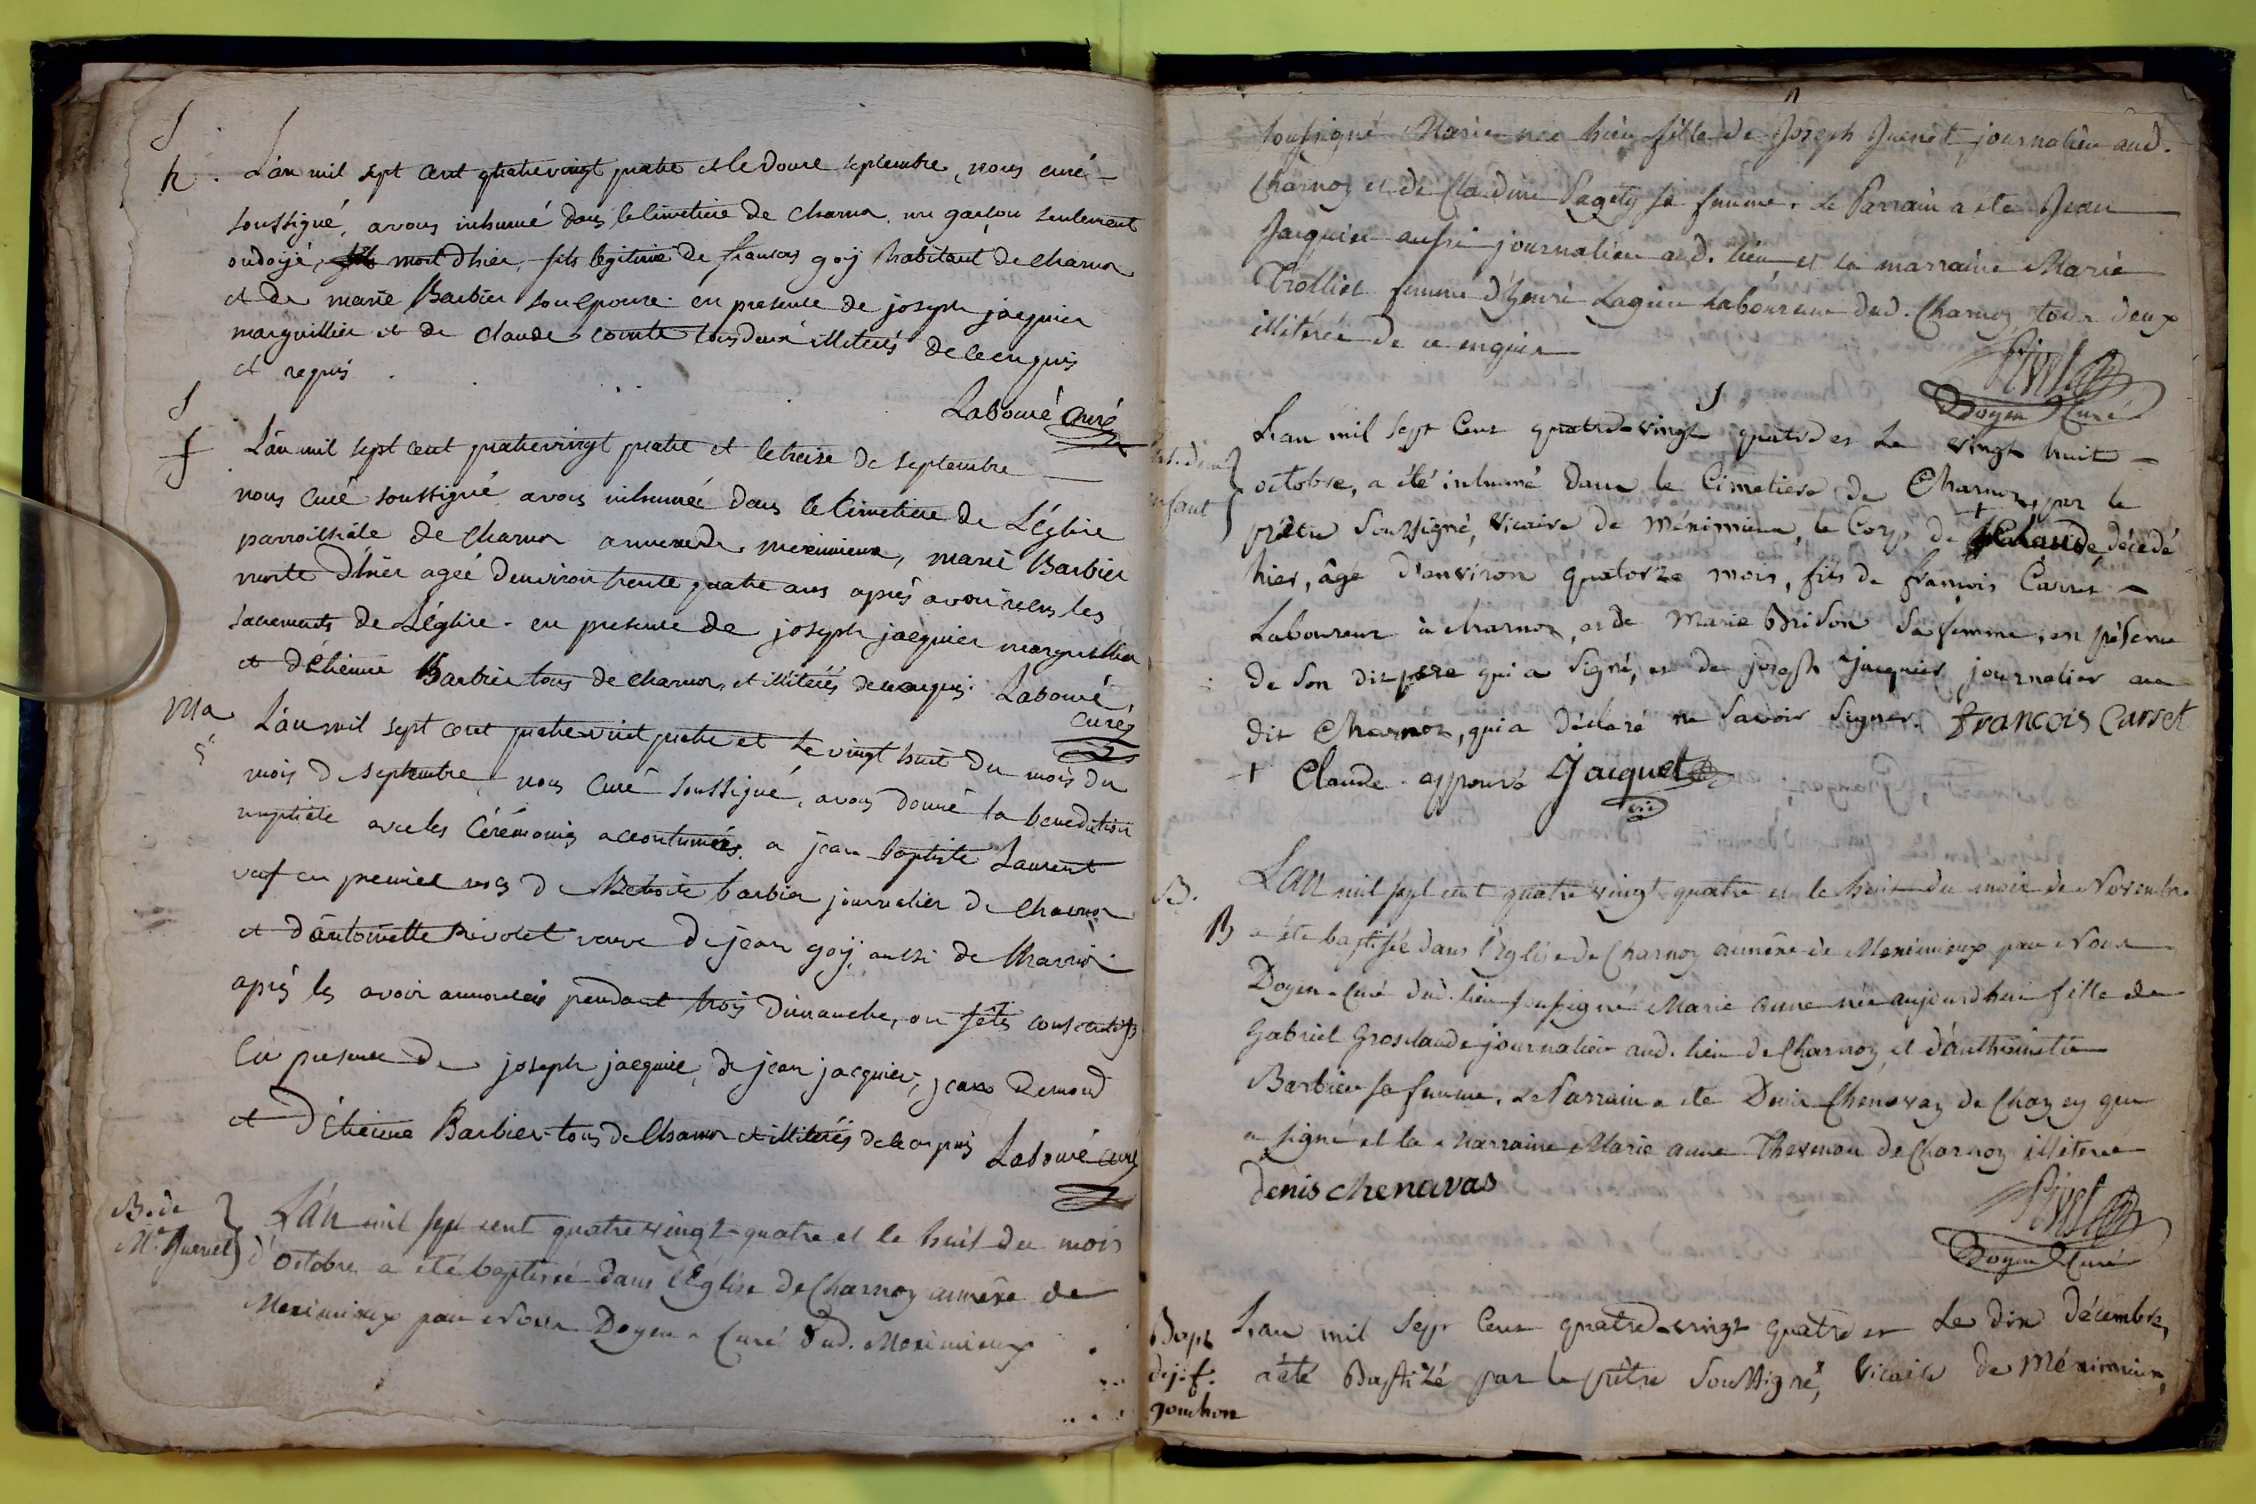 S
h. L'an mil sept cent quatrevingt quatre et le douze septembre, nous curé
soussigné, avons inhumé dans le cimetiere de charnoz un garçon seulement
ondoyé, mort d'hier, fils legitime de francois goy habitant de charnoz
et de marie Barbier son epouse. en presence de joseph jacquier
marguillier et de claude comte tous deux illiterés de ce enquis
et requis.
Labouré curé
S
f L'an mil sept cent quatrevingt quatre et le treize de septembre
nous curé soussigné avons inhumée dans le cimetiere de L'église
parroissiale de charnoz annexe de meximieux, marie Barbier
morte d'hier ageé d'environ trente quatre ans aprés avoir recu les
sacrements de L'église. en presence de joseph jacquier marguillier
et d'étienne Barbier tous de charnoz et illiterés de ce enquis. Labouré
curé
Ma L'an mil sept cent quatrevint quatre et le vingt huit du mois du
mois de septembre, nous curé soussigné, avons donné la benediction
nuptiale avec les cérémonies accoutumées a jean baptiste Laurent
veuf en premier noces de barbier journalier de charnoz
et d'antoinette Rivolet veuve de jean goy aussi de charnoz
aprés les avoir annoncés pendant trois dimanche, ou fêtes consecutifs
en presence de joseph jacquier, de jean jacquier, jean Remond
et d'étienne Barbier tous de charnoz et illiterés de ce enquis Labouré curé
B. de
Me Juenet
L'an mil sept cent quatre vingt-quatre et le huit du mois
d'octobre a été baptisée dans l'Eglise de Charnoz annexe de
Meximieux par Nous Doyen-Curé dud. Meximieux
soussigné Marie née hier fille de Joseph Juenet journalier aud.
Charnoz et de Claudine Pagety sa femme. Le Parrain a été Jean
Jacquier aussi journalier aud. lieu et la marraine Marie
Trolliet femme d'henri Lagieu Laboureur dud. Charnoz tous deux
illiterés de ce enquis
Pivet
Doyen Curé
S
enfant
L'an mil sept Cent quatre-vingt quatre et le vingt huit
octobre, a été inhumé dans le Cimetiere de Charnoz, par le
prêtre Soussigné, vicaire de Méximieux, le Corp de + décedé
hier, âgé d'environ quatorze mois, fils de françois Carret
Laboureur à charnoz, et de Marie Brison sa femme, en présence
de Son dit pere qui a signé, et de joseph jacquier journalier au
dit Charnoz, qui a déclaré ne savoir signer. francois Carret
+ Claude approuvé Jacquet
vic
B.
B L'an mil sept cent quatre vingt-quatre et le huit du mois de Novembre
a été baptisée dans l'église de Charnoz annexe de Meximieux par Nous
Doyen-Curé dud. lieu soussigné Marie anne née aujourd'hui fille de
Gabriel Grosclaude journalier aud. lieu de Charnoz et d'anthoinette
Barbier sa femme. Le Parrain a été Denis Chenavaz de Chazey qui
a signé et la Marraine Marie anne Thevenon de Charnoz illiterée
denis chenavas
Pivet
Doyen Curé
Bapt
de j. f.
gonchon
L'an mil sept Cent quatre-vingt quatre et Le dix décembre,
a été Baptizé par le prêtre Soussigné, vicaire de Méximieux,